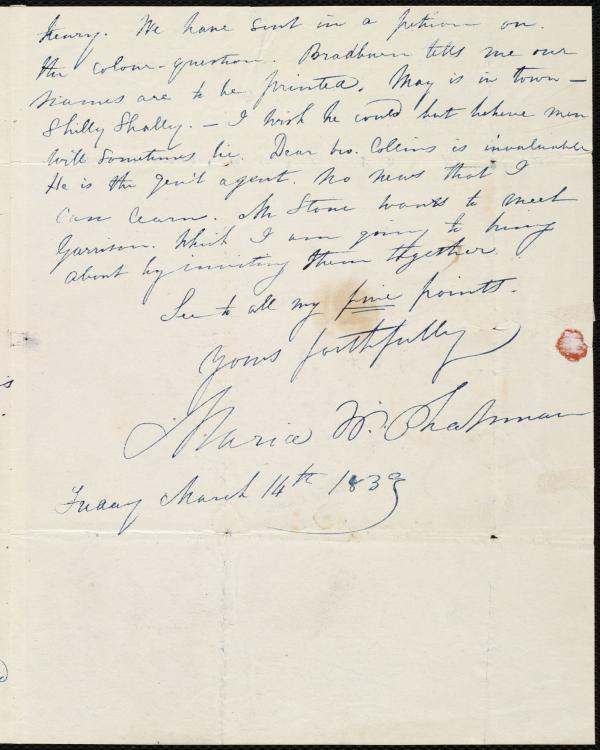 Henry. We have sent in a petition on.
the colour-question. Bradburn tells me our
names are to be printed. May is in town —
Shilly Shally. — I wish he could but believe men
will sometimes lie. Dear bro. Collins is invaluable
He is the gen'l agent. No news that I
can learn. Mr Stone wants to meet
Garrison. Which I am going to bring
about by inviting them together.
See to all my fine points.
Yours faithfully
Maria W. Chapman
Friday March 14th 1839